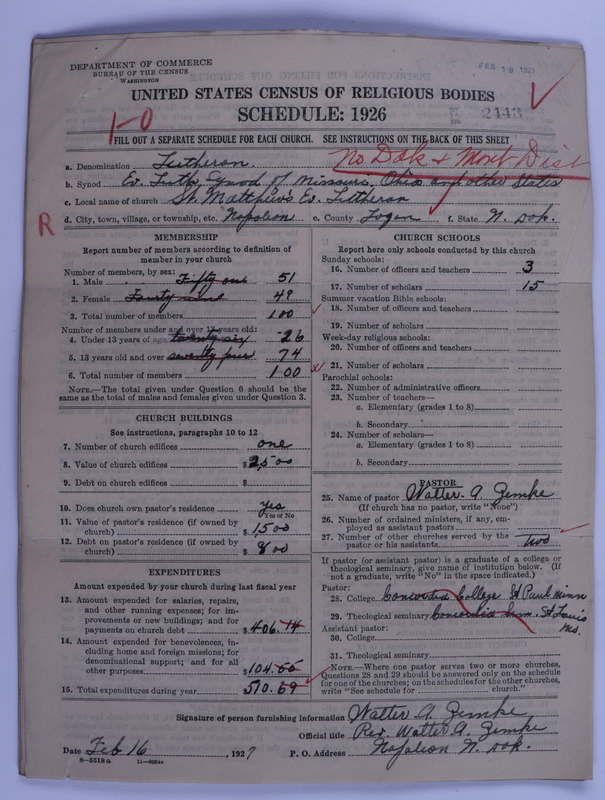 DEPARTMENT OF COMMERCE
BUREAU OF THE CENSUS
WASHINGTON
FEB 19 1927
UNITED STATES CENSUS OF RELIGIOUS BODIES
SCHEDULE: 1926
2443
1-0
FILL OUT A SEPARATE SCHEDULE FOR EACH CHURCH. SEE INSTRUCTIONS ON THE BACK OF THIS SHEET
No Dak + Mont Dist
a. Denomination Lutheran.
b. Synod Ev. Luth. Synod of Missouri, Ohio and other States
c. Local name of church St. Matthew's Ev. Lutheran
R
d. City, town, village, or township, etc. Napoleon e. County Logan f. State N. Dak.
MEMBERSHIP
Report number of members according to definition of member in your church
Number of members, by sex:
1. Male Fifty one 51
2. Female Fourty nine 49
3. Total number of members 100
Number of members under and over 13 years old:
4. Under 13 years of age twenty six 26
5. 13 years old and over seventy four 74
6. Total number of members 100
NOTE.—The total given under Question 6 should be the same as the total of males and females given under Question 3.
CHURCH BUILDINGS
See instructions, paragraphs 10 to 12
7. Number of church edifices one
8. Value of church edifices $2500
9. Debt on church edifices $
10. Does church own pastor's residence? yes
Yes or No
11. Value of pastor's residence (if owned by church) $1500
12. Debt on pastor's residence (if owned by church) $800
EXPENDITURES
Amount expended by your church during last fiscal year
13. Amount expended for salaries, repairs, and other running expenses; for improvements or new buildings; and for payments on church debt $406.14
14. Amount expended for benevolences, including home and foreign missions; for denominational support; and for all other purposes $104.55
15. Total expenditures during year $510.69
CHURCH SCHOOLS
Report here only schools conducted by this church
Sunday schools:
16. Number of officers and teachers 3
17. Number of scholars 15
Summer vacation Bible schools:
18. Number of officers and teachers
19. Number of scholars
Week-day religious schools:
20. Number of officers and teachers
21. Number of scholars
Parochial schools:
22. Number of administrative officers
23. Number of teachers—
a. Elementary (grades 1 to 8)
b. Secondary
24. Number of scholars—
a. Elementary (grades 1 to 8)
b. Secondary
PASTOR
25. Name of pastor Walter A. Zemke
(If church has no pastor, write "None")
26. Number of ordained ministers, if any, employed as assistant pastors
27. Number of other churches served by the pastor or his assistants two
If pastor (or assistant pastor) is a graduate of a college or theological seminary, give name of institution below. (If not a graduate, write "No" in the space indicated.)
Pastor:
28. College Concordia College St Paul Minn
29. Theological seminary Concordia Sem. St Louis Mo.
Assistant pastor:
30. College
31. Theological seminary
NOTE.—Where one pastor serves two or more churches, Questions 28 and 29 should be answered only on the schedule for one of the churches; on the schedules for the other churches, write "See schedule for church."
Signature of person furnishing information Walter A. Zemke
Official title Rev. Walter A. Zemke
Date Feb 16, 1927 P. O. Address Napoleon N. Dak.